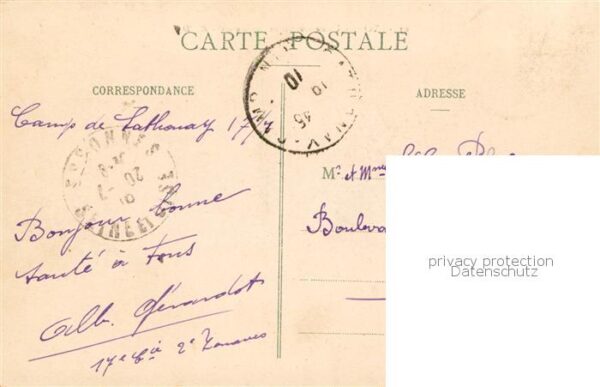 CARTE POSTALE
CORRESPONDANCE
ADRESSE
Camp de Sathonay 17/7
Bonjour bonne
santé à Tous
Alb. Gérardot
17e Cie 2e Zouaves
Mr et Mme
Bouleva
ESSONNES
10
privacy protection
Datenschutz